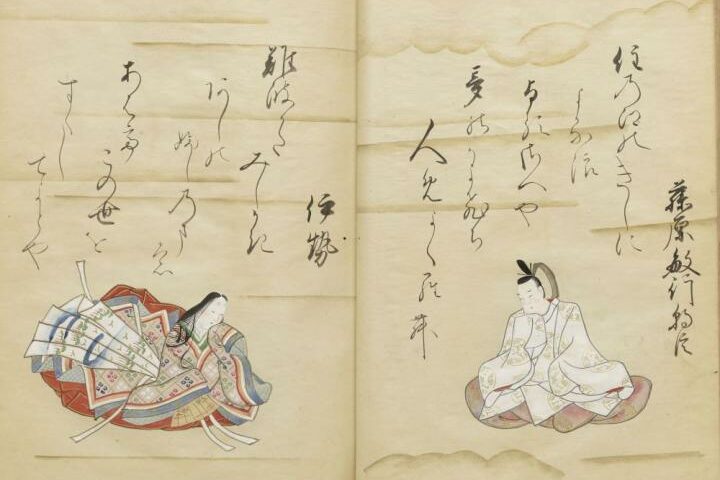 藤原敏行朝臣
住乃江のきしに
よる浪
よるさへや
夢のかよひち
人めよくらむ
伊勢
難波かた
みしかき
あしの
ふしのまも
あはて
この世を
すくし
てよとや